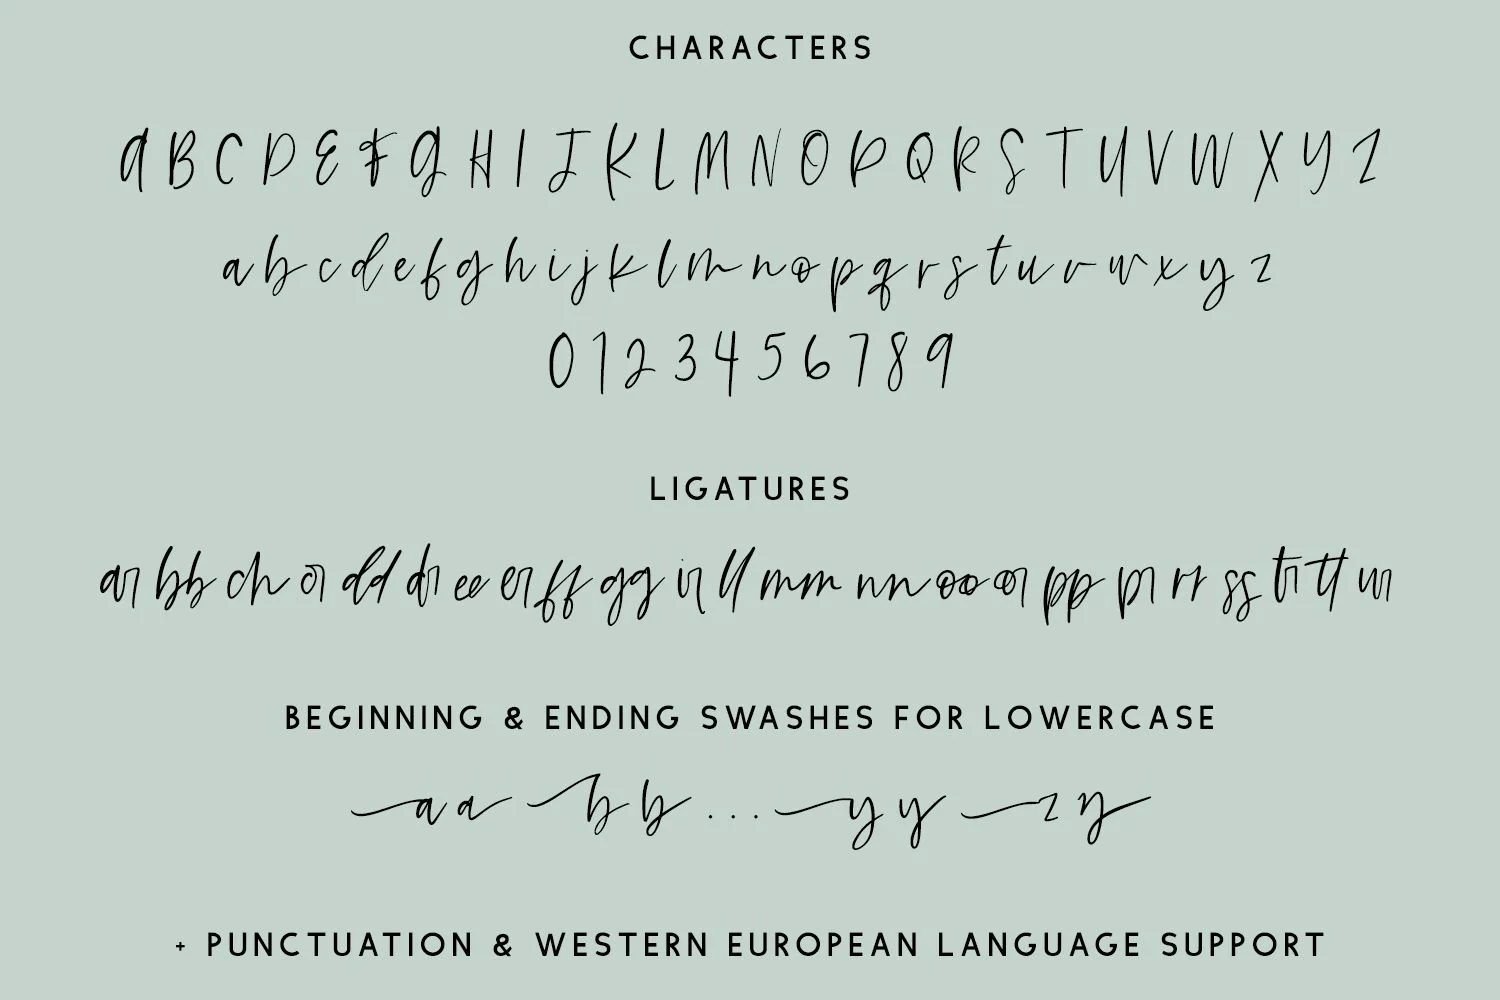 CHARACTERS
A B C D E F G H I J K L M N O P Q R S T U V W X Y Z
a b c d e f g h i j k l m n o p q r s t u v w x y z
0 1 2 3 4 5 6 7 8 9
LIGATURES
ar bb ch cr dd dr ee er ff gg ir ll mm nn oo or pp pr rr ss tr tt ur
BEGINNING & ENDING SWASHES FOR LOWERCASE
a a b b ... y y z z
+ PUNCTUATION & WESTERN EUROPEAN LANGUAGE SUPPORT